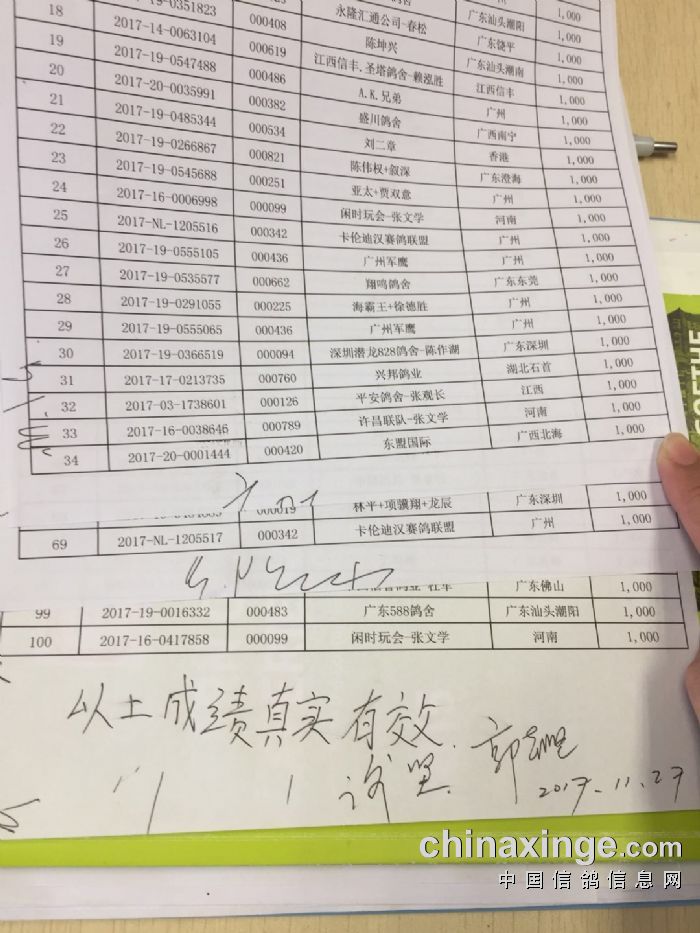 广东汕头潮阳 1,000
永隆汇通公司-春松 广东饶平 1,000
2017-19-0351823 000408 陈坤兴 广东汕头潮南 1,000
18 2017-14-0063104 000619 江西信丰.圣塔鸽舍-赖泓胜 江西信丰 1,000
19 2017-19-0547488 000486 A.K.兄弟 广州 1,000
20 2017-20-0035991 000382 盛川鸽舍 广西南宁 1,000
21 2017-19-0485344 000534 刘二章 香港 1,000
22 2017-19-0266867 000821 陈伟权+叙深 广东澄海 1,000
23 2017-19-0545688 000251 亚太+贾双意 广州 1,000
24 2017-16-0006998 000099 闲时玩会-张文学 河南 1,000
25 2017-NL-1205516 000342 卡伦迪汉赛鸽联盟 广州 1,000
26 2017-19-0555105 000436 广州军鹰 广州 1,000
27 2017-19-0535577 000662 翔鸣鸽舍 广东东莞 1,000
28 2017-19-0291055 000225 海霸王+徐德胜 广州 1,000
29 2017-19-0555065 000436 广州军鹰 广州 1,000
30 2017-19-0366519 000094 深圳潜龙828鸽舍-陈作湖 广东深圳 1,000
31 2017-17-0213735 000760 兴邦鸽业 湖北石首 1,000
32 2017-03-1738601 000126 平安鸽舍-张观长 江西 1,000
33 2017-16-0038646 000789 许昌联队-张文学 河南 1,000
34 2017-20-0001444 000420 东盟国际 广西北海 1,000
000019 林平+项骥翔+龙辰 广东深圳 1,000
69 2017-NL-1205517 000342 卡伦迪汉赛鸽联盟 广州 1,000
广东佛山 1,000
99 2017-19-0016332 000483 广东588鸽舍 广东汕头潮阳 1,000
100 2017-16-0417858 000099 闲时玩会-张文学 河南 1,000
以上成绩真实有效.
2017.11.27
chinaxinge.com
中国信鸽信息网